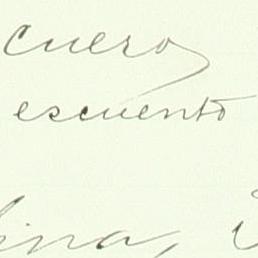 cuero,
escuento
ina,